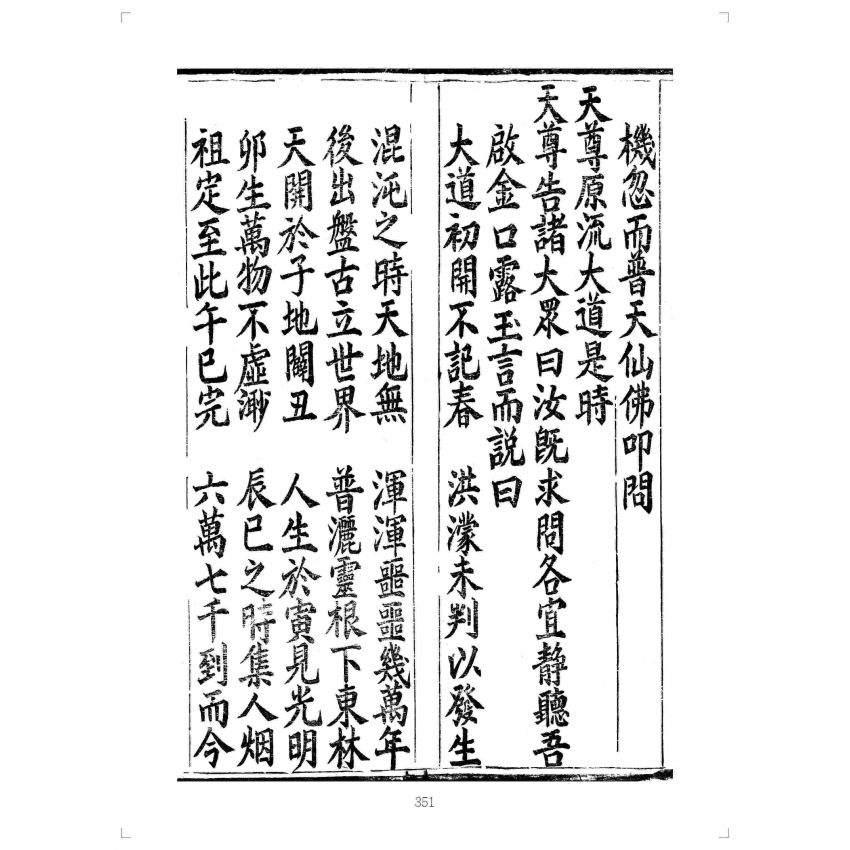 機忽而普天仙佛叩問
天尊原流大道是時
天尊告諸大眾曰汝既求問各宜靜聽吾
啟金口露玉言而説曰
大道初開不記春 洪濛未判以發生
混沌之時天地無 渾渾噩噩幾萬年
後出盤古立世界 普灑靈根下東林
天開於子地闢丑 人生於寅見光明
卯生萬物不虛渺 辰巳之時集人烟
祖定至此午巳完 六萬七千到而今
351